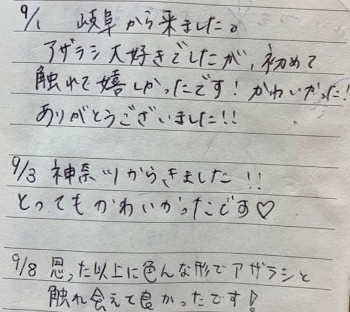 9/1 岐阜から来ました。
アザラシ大好きでしたが、初めて
触れて嬉しかったです！かわいかった！
ありがとうございました!!
9/3 神奈川からきました!!
とってもかわいかったです♡
9/8 思った以上に色んな形でアザラシと
触れ会えて良かったです！